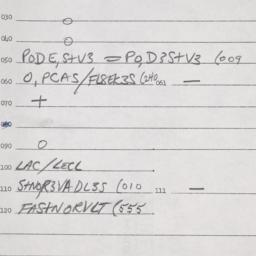 030 O
040 O
050 PODE,S+V3 = PO,D3S+V3 (009
060 O,PCAS/FL8EK3S (240 061 —
070 +
080
090 O
100 LAC/LECL
110 S+NOR3VADL3S (010 111 —
120 FAS+NORVLT (555